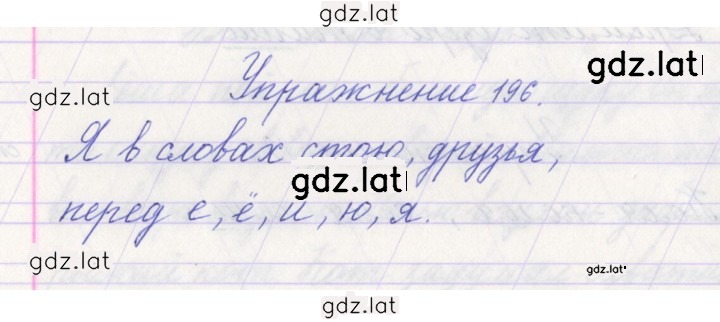 gdz.lat
gdz.lat
Упражнение 196.
gdz.lat
Я в словах стою, друзья,
gdz.lat
перед е, ё, и, ю, я.
gdz.lat
gdz.lat
gdz.lat